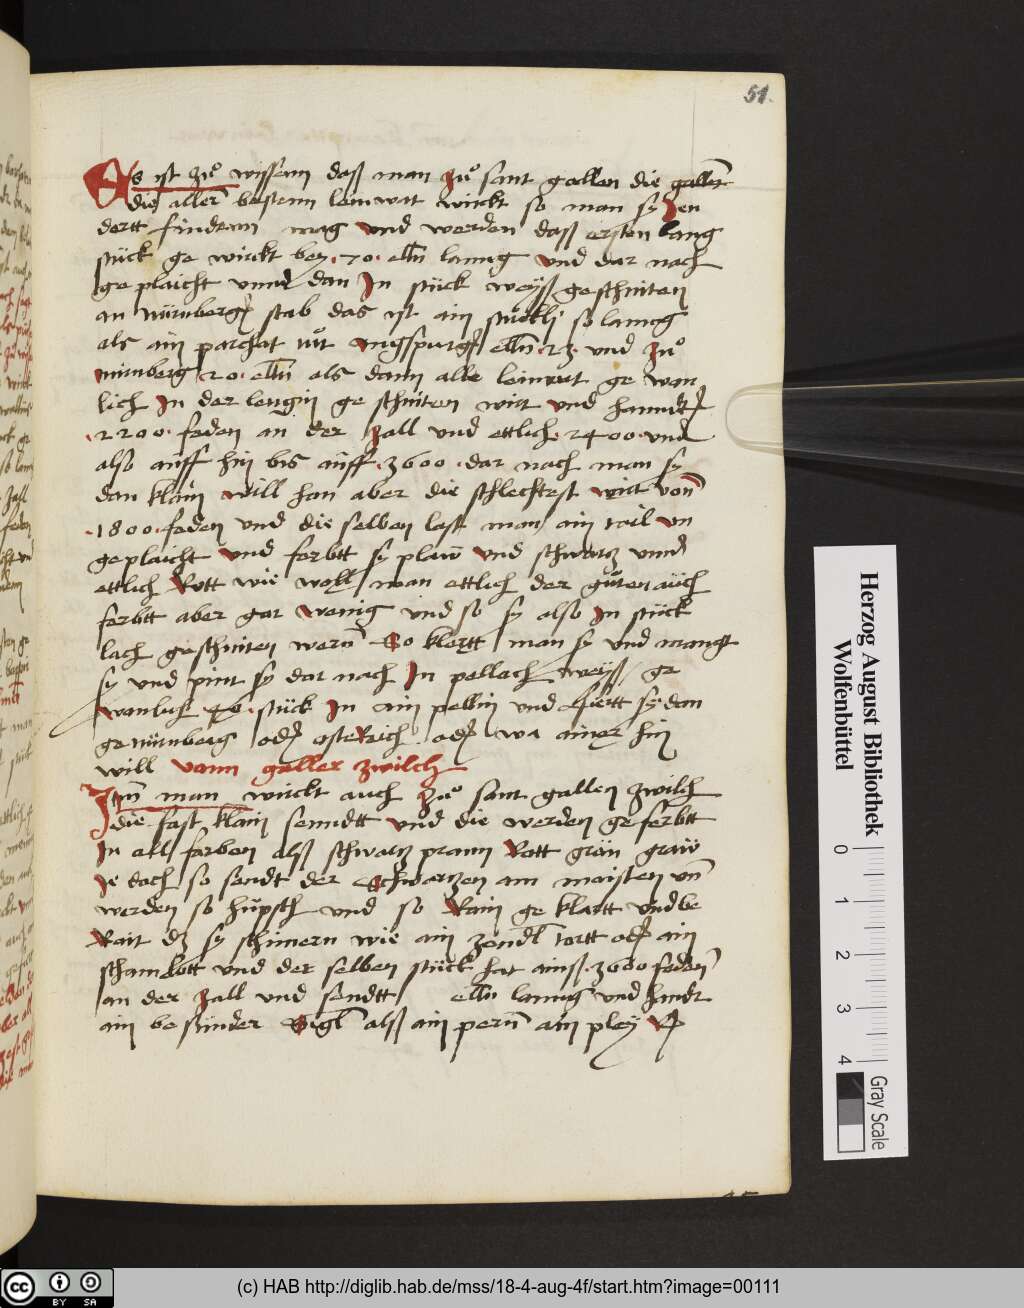 51.
Es ist zuͦ wissenn daß man zuͦ sant gallen die gallen
die aller bestenn leinwat wirckt so man sy Jen
dertt findenn mag vnd werden daß ersten lang
stück ge wirckt bey .70. elln̄ lanng vnd dar nach
ge plaicht vnnd dan In stück weyß geschniten
an nürnberg stab das ist ain stückly so lanng
als ain parchat wirt augspurg elln̄ 23 vnd zuͦ
nürnberg 20. elln̄ als dann alle leinwat ge wan
lich In der lengin ge schniten wirt vnd hanndt
.2200. feden an der zall vnd ettlich .2400. vnd
also auff hin bis auff .3600. dar nach man sy
dan klain will han aber die schlechtest wirt vonn
.1800. feden vnd die selben last man ain tail vn
geplaicht vnd ferbtt sy plaw vnd schwarz vnnd
ettlich Rott wie woll man ettlich der guͦten auch
ferbtt aber gar wenig vnd so sy also In stück
lach geschniten wern̄ So klertt man sy vnd mangt
sy vnd pint sy dar nach In pellach weyß ge
wanlich 40. stück In ain pellin vnd fiertt sy dan
ge nürnberg oder osteRich oder wa ainer hin
will vonn galler zwilch
Itm̄ man wirckt auch zuͦ sant gallen zwilch
die fast klain senndtt vnd die werden ge ferbtt
In all farben alß schwarz prann Rott grün graw
Je doch so sendt der Schwarzen am maisten vn̄
werden so hüpsch vnd so Rain ge klartt vnd be
Rait dz sy schinern wie ain zendl tortt oder ain
schamlott vnd der selben stück hat ainß .3600 feden
an der zall vnd sendtt elln̄ lanng vnd hindt
ain be sünder Sigl alß ain pern̄ ain pley
Herzog August Bibliothek
Wolfenbüttel
0 1 2 3 4
Gray Scale
cc BY SA
(c) HAB http://diglib.hab.de/mss/18-4-aug-4f/start.htm?image=00111